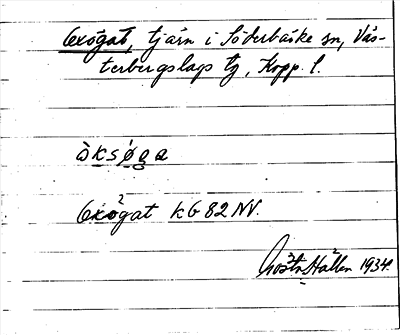 Oxögat, tjärn i Söderbärke sn, Väs-
terbergslags tg, Kopp. l.
òksǿga
Oxögat kG 82 NV.
Gösta Hallén 1934.